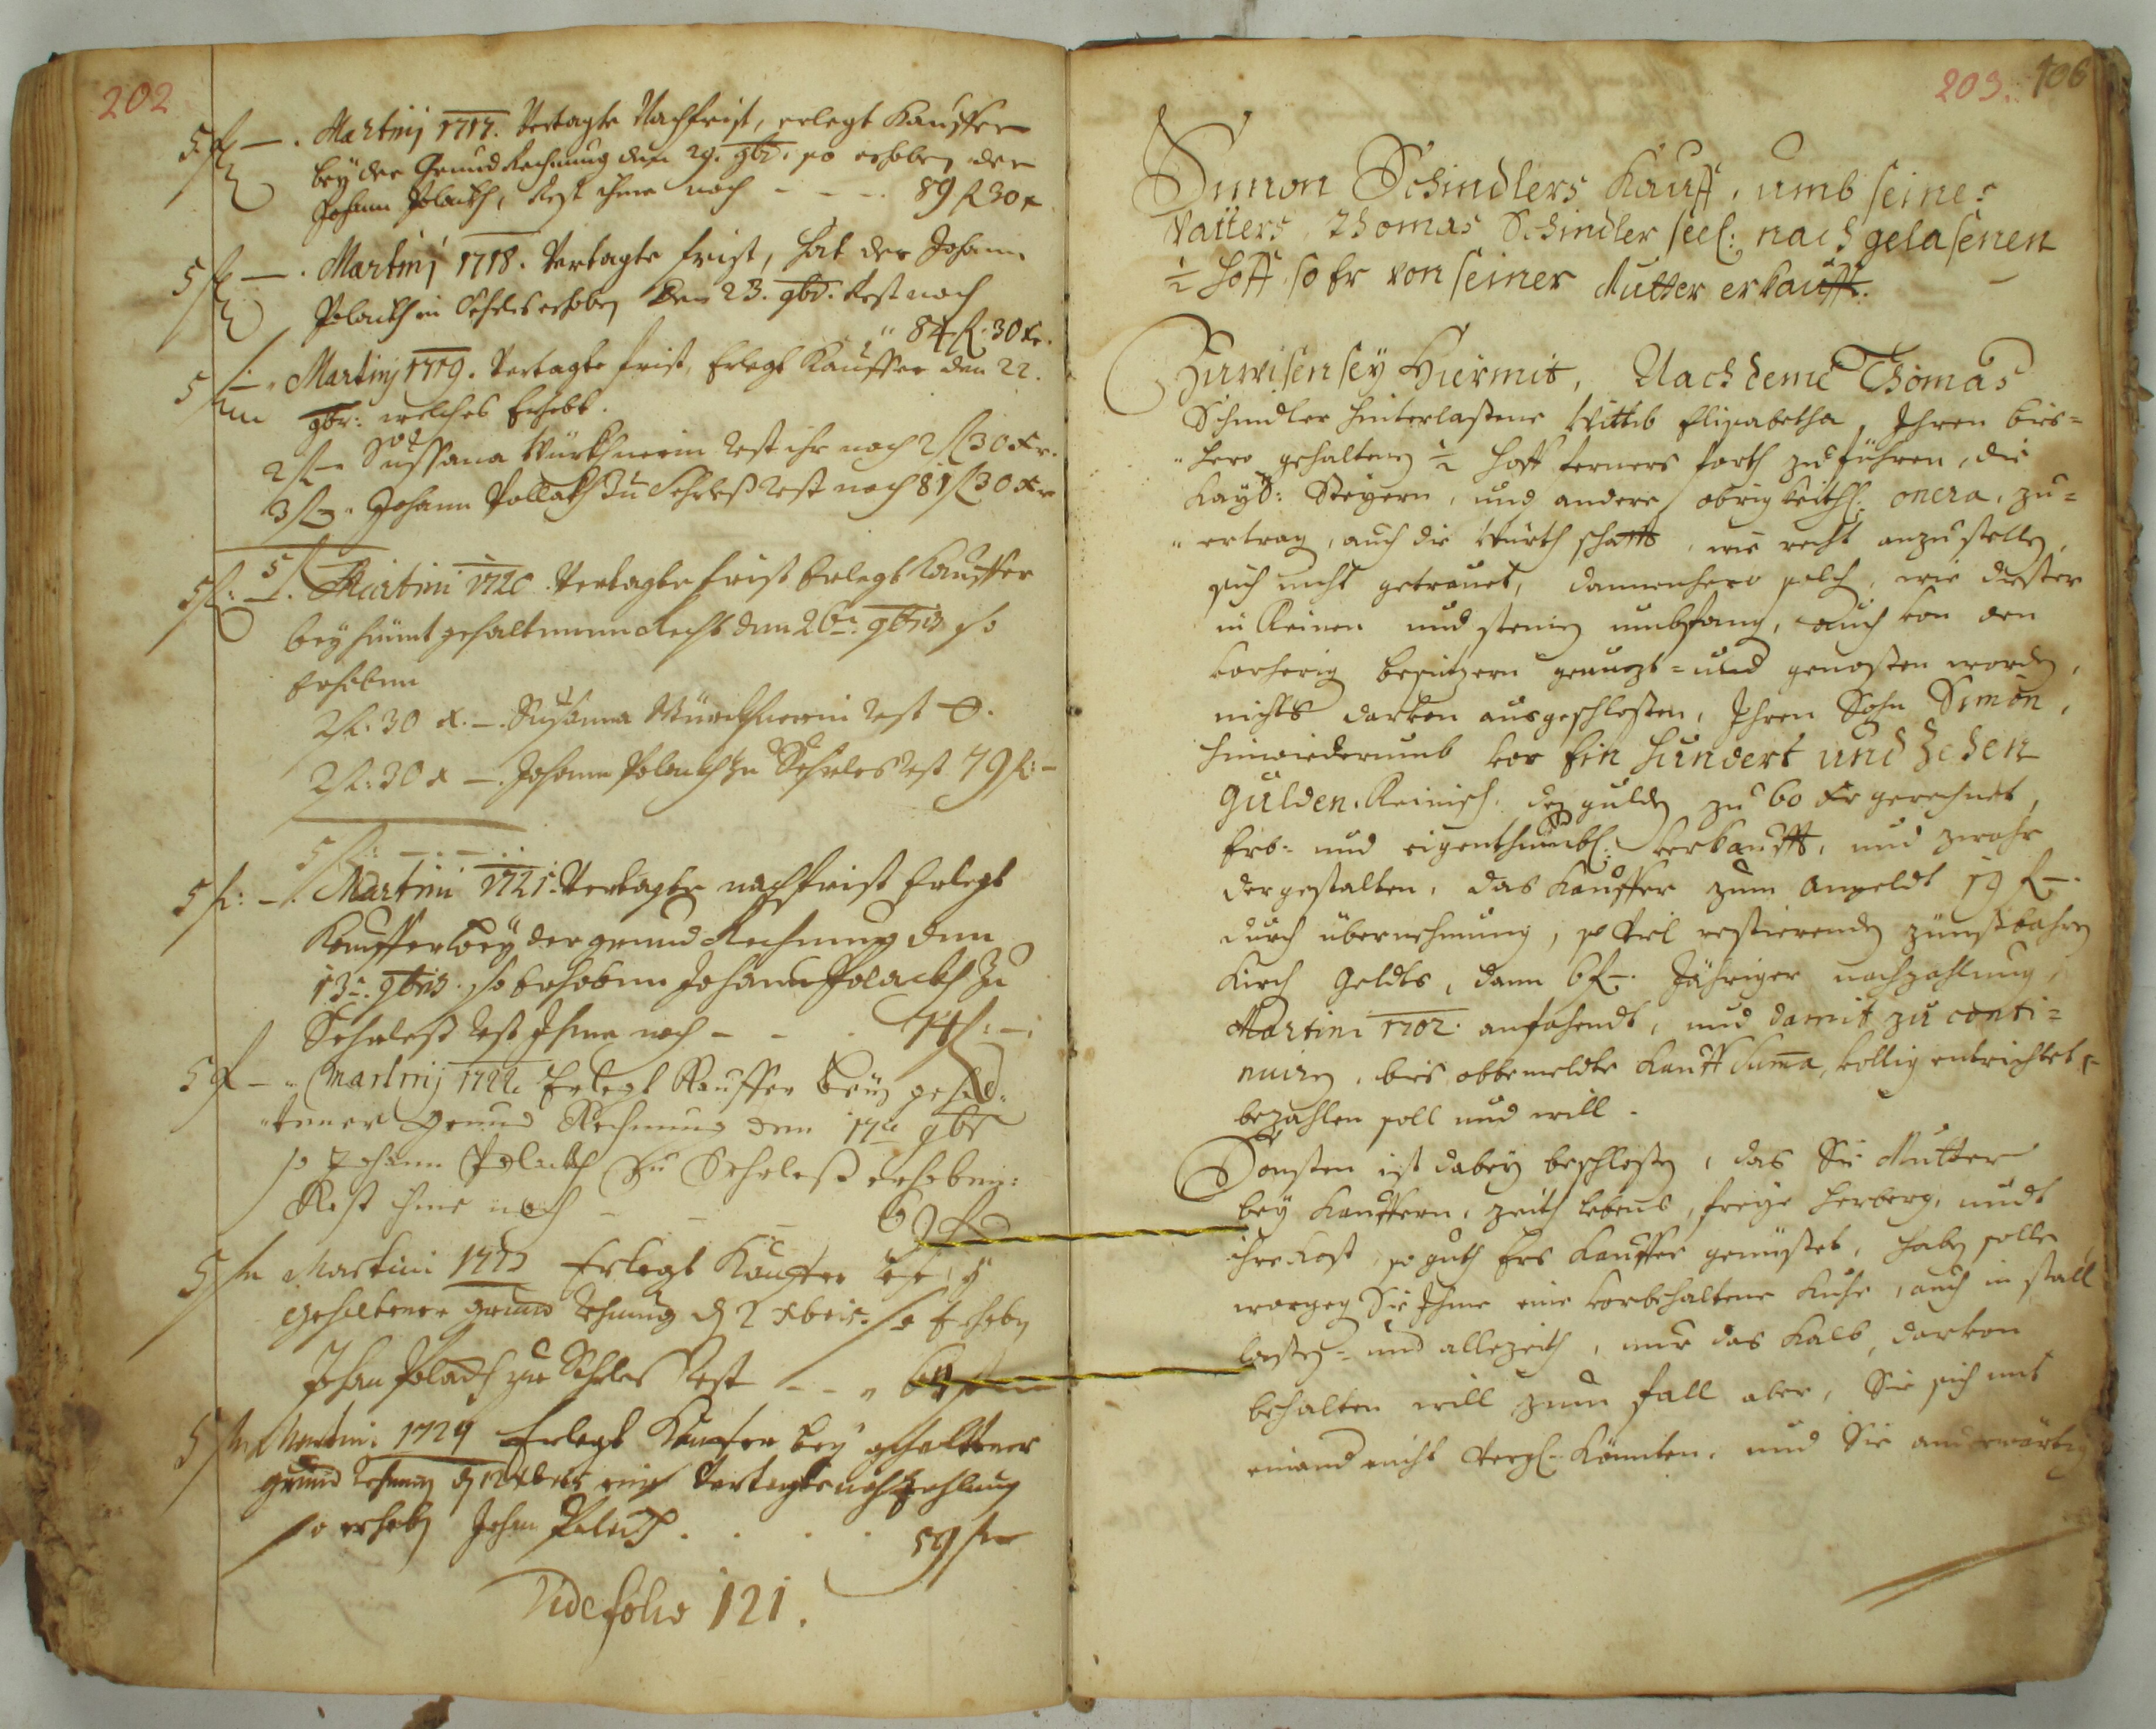 202
5 fl — . Martinj 1717. Vertagte Nachfrist, erlegt Kauffer
bey der Grund Rechnung den 29. 9br. so erhoben der
Johann Polackh, Rest ihme noch - - - . 89 fl 30 x
5 fl — . Martinj 1718. Vertagte frist, hat der Johann
Polackh in Sehrles erhoben den 23. 9br. Rest noch
84 fl. 30 xr.
5 fl — Martinj 1719. Vertagte frist, Erlegt Kauffer den 22.
9br: welches Erhebt.
2 fl — Sussana Würthnerin Rest ihr noch 2 fl 30 xr.
3 fl — Johann Pollackh zu Sehrleß Rest noch 81 fl 30 xr
5 fl
5 fl: — . Martini 1720. Vertagte frist Erlegt Kauffer
bey heunt gehaltenen Recht den 26ten 9bris so
Erhoben
2 fl: 30 x. — . Susanna Würthnerin Rest 0.
2 fl: 30 x — . Johann Polackh zu Sehrles Rest 79 fl: —
5 fl: — . —
5 fl: — . Martini 1721. Vertagte nachfrist Erlegt
Kauffer bey der grund Rechnung den
13ten 9bris. so Erhoben Johann Polackh zu
Sehrleß Rest Ihme noch - - . 74 fl: — .
5 fl — Martinij 1722 Erlegt Kauffer bey gehal-
tener grund Rechnung den 17ten 9br
so Johann Polackh zu Sehrleß erhoben:
Rest ihme noch - - - 69 fl
5 fl Martini 1723 Erlegt Kauffer bey
gehaltener grund Rechnung d 2 Xbris. so Erhoben
Johan Polackh zu Sehrles Rest - - 64 fl
5 fl Martini 1724 Erlegt Kauffer bey gehaltener
grund Rechnung d 12 Xbris eine Vertagte nachzahlung
so erhoben Johan Polackh . . . . 59 fl
Vide folio 121.
203. 106
Simon Schindlers Kauff, umb seines
Vatters, Thomas Schindler seel: nach gelasenen
½ Hoff so Er von seiner Mutter erkaufft.
Zuwisen sey Hiermit, Nachdeme Thomas
Schindler hinterlaßene Wittib Elisabetha, Ihren bis-
hero gehalteny ½ Hoff ferners forth zu führen, die
Kayß: Steyern, und andere obrigkeithl: onera, zu-
ertrag, auch die Würthschafft, wie recht anzustellen,
sich nicht getrauet, dannenhero solch, wie dieser
in Reinen und steinen umbfang, auch von den
vorherig besitzern genutzt- und genoßen worden,
nichts darvon ausgeschloßen, Ihren Sohn Simon,
hinwiederumb vor Ein Hundert und Zehen
Gulden Reinisch, den gulden zu 60 xr gerechnet,
Erb- und eigenthumbl: verkaufft, und zwahr
dergestalten, das Kauffer zum Angeldt 19 fl —.
durch übernehmung, so viel restierendten zünßbahren
Kirch Geldts, dann 6 fl —. Jähriger nachzahlung
Martini 1702. anfahendt, und damit zu conti-
nuiren, bis obbemeldte Kauff Suma, völlig entrichtet
bezahlen soll und will.
Sonsten ist dabey beschloßen, das Sie Mutter
bey Kauffern, zeith lebens, freye herberg, undt
ihre Kost, so guth Ers Kauffer genüßet, haben solle
wargeg Sie Ihme eine vorbehaltene Kuhe, auch in stall
laßen- und allezeith, nur das Kalb, darvon
behalten will zum fall aber, Sie sich mit
einand nicht vergl: könnten, und Sie anderwärtig